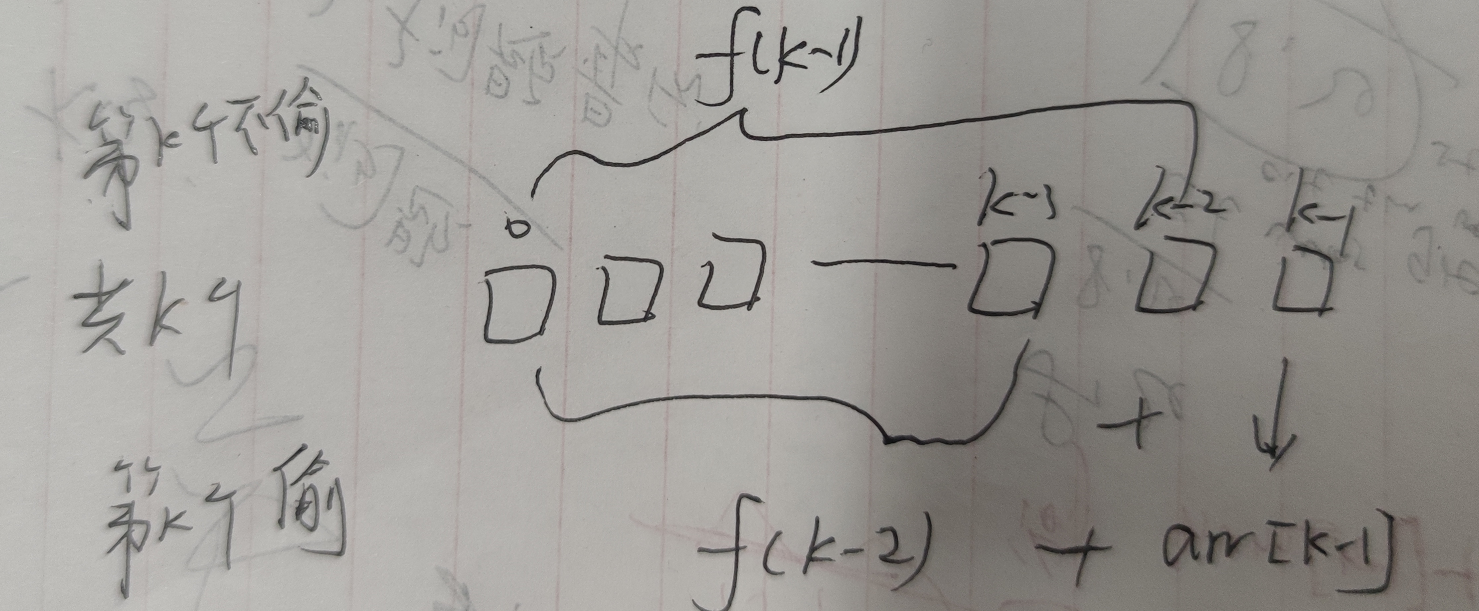 f(k-1)
第k个不偷
0 k-3 k-2 k-1
共k个
+
第k个偷
f(k-2) + arr[k-1]